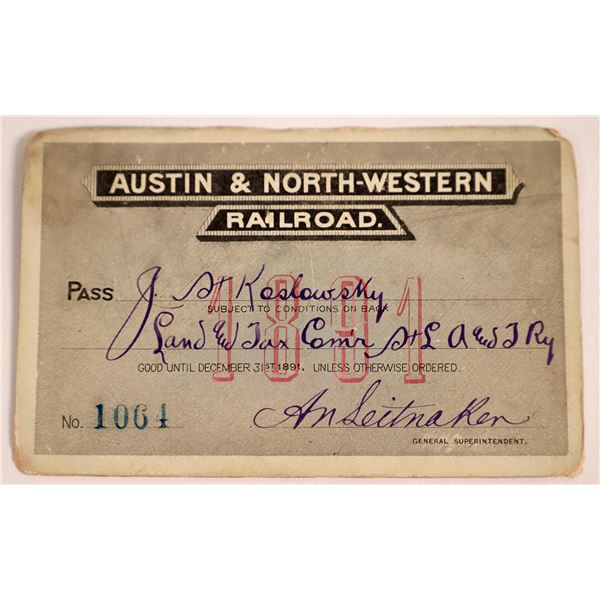 AUSTIN & NORTH-WESTERN
RAILROAD.
PASS J. St Koslowsky
SUBJECT TO CONDITIONS ON BACK
1891
Land and Tax Com'r St L A and T Ry
GOOD UNTIL DECEMBER 31ST 1891, UNLESS OTHERWISE ORDERED.
No. 1064
GENERAL SUPERINTENDENT.